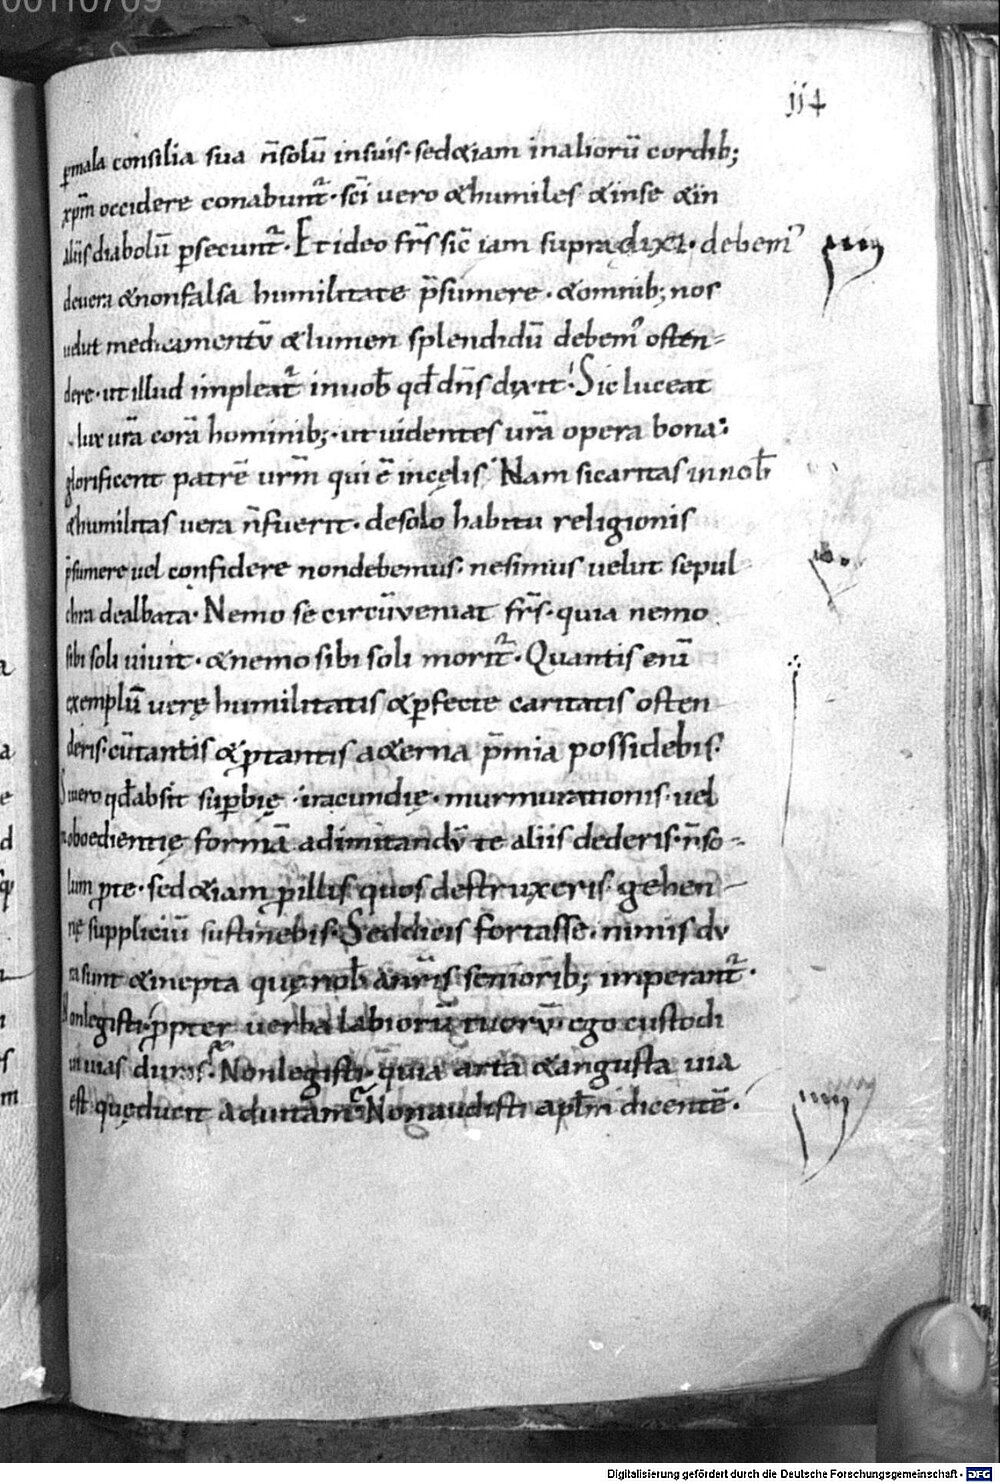 00110709
114
p̱mala consilia sua n̄solū insuis· sed&iam inaliorū cordib;
xp̄m occidere conabunt̄· sc̄i uero &humiles &inse &in
aliis diabolū p̱secunt̄· Et ideo fr̄s sic̄ iam supra dixi· debem᾽
deuera &nonfalsa humilitate p̄sumere· &omnib; nos
uelut medicamentū &lumen splendidū debem᾽ osten-
dere· ut illud impleat̄ inuob̄ qd̄ dn̄s dixit· Sic luceat
lux ur̄a corā hominib;· ut uidentes ur̄a opera bona:
glorificent patrē ur̄m qui ē incęlis· Nam sicaritas innob̄
&humilitas uera n̄fuerit· desolo habitu religionis
p̄sumere uel confidere nondebemus· nesimus uelut sepul
chra dealbata· Nemo se circūueniat fr̄s· quia nemo
sibi soli uiuit· &nemo sibi soli morit̄· Quantis enī
exemplū uerę humilitatis &p̱fecte caritatis osten
deris· cūtantis &p̱tantis a&erna p̄mia possidebis·
Si uero qd̄absit sup̱bię· iracundię· murmurationis· uel
inoboedientię formā adimitandū te aliis dederis· n̄so-
lum p̱te· sed&iam p̱illis quos destruxeris· gehen-
nę suppliciū sustinebis· Sed dicis fortasse· nimis du
ra sunt &inepta quę nob̄ anr̄is seniorib; imperant̄·
Non legisti· p̱pter uerba labiorū tuorū· ego custodi
ui uias duras· Nonlegisti· quia arta &angusta uia
est quęducit aduitam· Nonaudisti apl̄m dicentē·
Digitalisierung gefördert durch die Deutsche Forschungsgemeinschaft - DFG